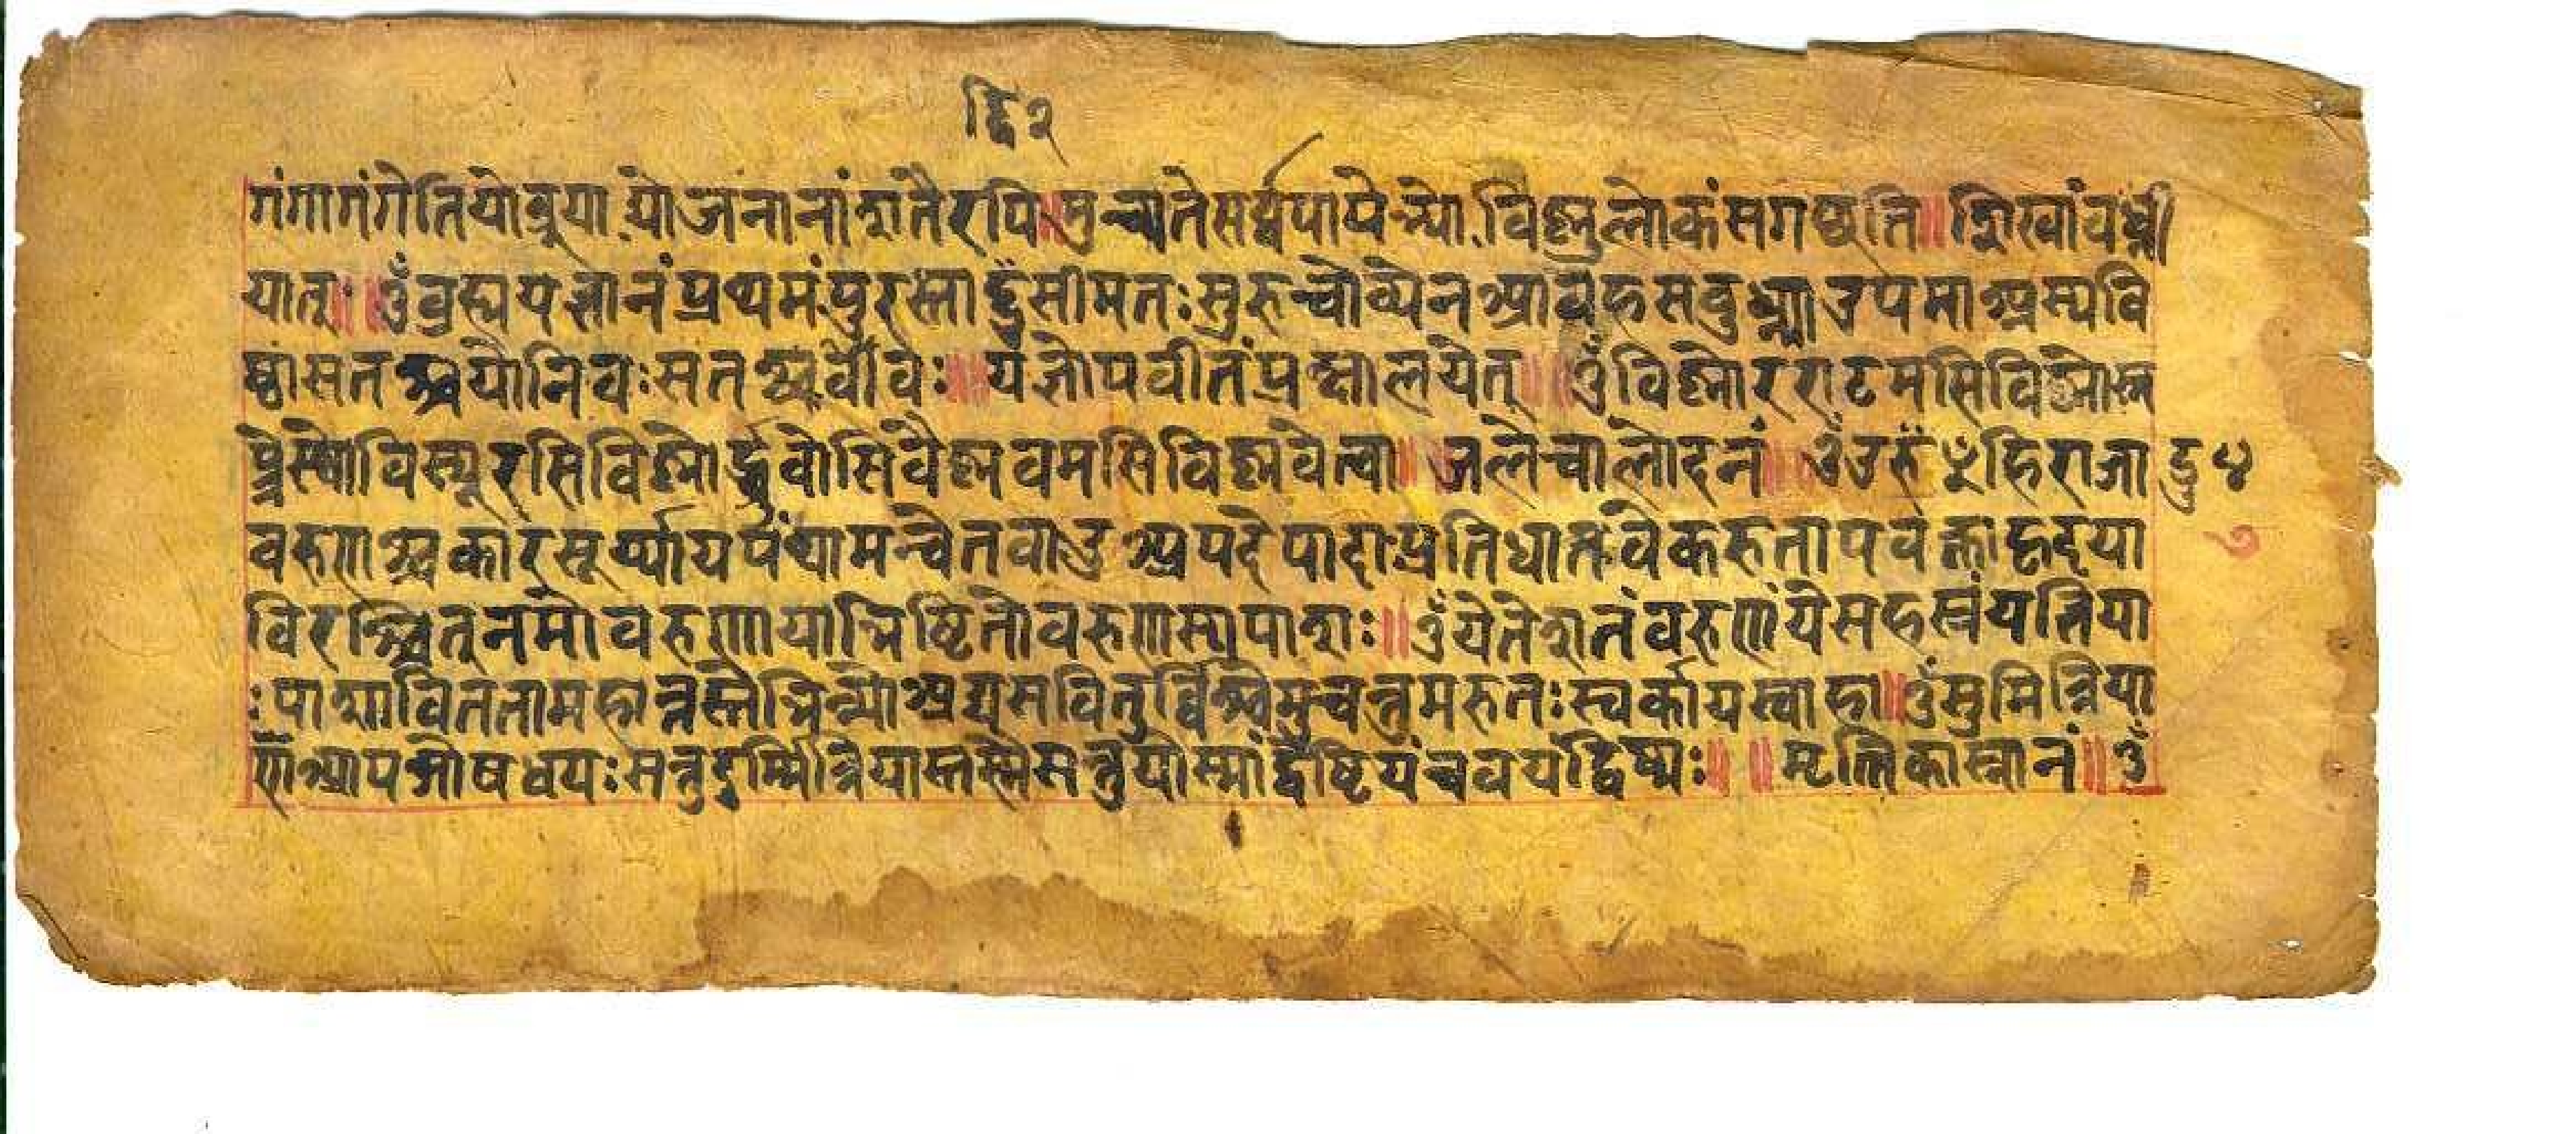 द्वि २
गंगागंगेतियोब्रूयाद्योजनानांशतैरपि॥मुच्यतेसर्व्वपापेभ्योविष्णुलोकंसगच्छति॥शिखांवध्नी
यात्॥॥ॐव्रह्मयज्ञानंप्रथमंपुरस्ताद्विसीमतःसुरुचोव्येनआवहसवुध्न्याउपमाअस्यवि
ष्ठासतश्चयोनिवःसतश्चविवः॥॥यज्ञोपवीतंप्रक्षालयेत्॥॥ॐविष्णोरराटमसिविष्णोस्न
प्त्रेस्थोविस्यूरसिविष्णोर्द्ध्रुवोसिवैष्णवमसिविष्णवेत्वा॥जलेचालोदनं॥ॐउरुꣳहिराजा
वरुणश्चकारसूर्य्यायपंथामन्वेतवाउअपदेपादाप्रतिधातवेकरुतापवक्ताहृदया
विरश्चित्नमोवरुणायाभिष्टितोवरुणस्यपाशः॥ॐयेतेशतंवरुणंयेसहस्रंयज्ञिया
ःपाशाविततामहान्तस्तेभिन्नोअद्यसवितुर्विश्वेमुचन्तुमरुतःस्वर्कायस्वाहा॥ॐसुमित्रिया
णआपओषधयःसन्तुदुर्म्मित्रियास्तस्मैसन्तुयोस्मांद्वेष्टियंचवयंद्विष्मः॥॥मृत्तिकास्नानं॥ॐ
दु ४
७